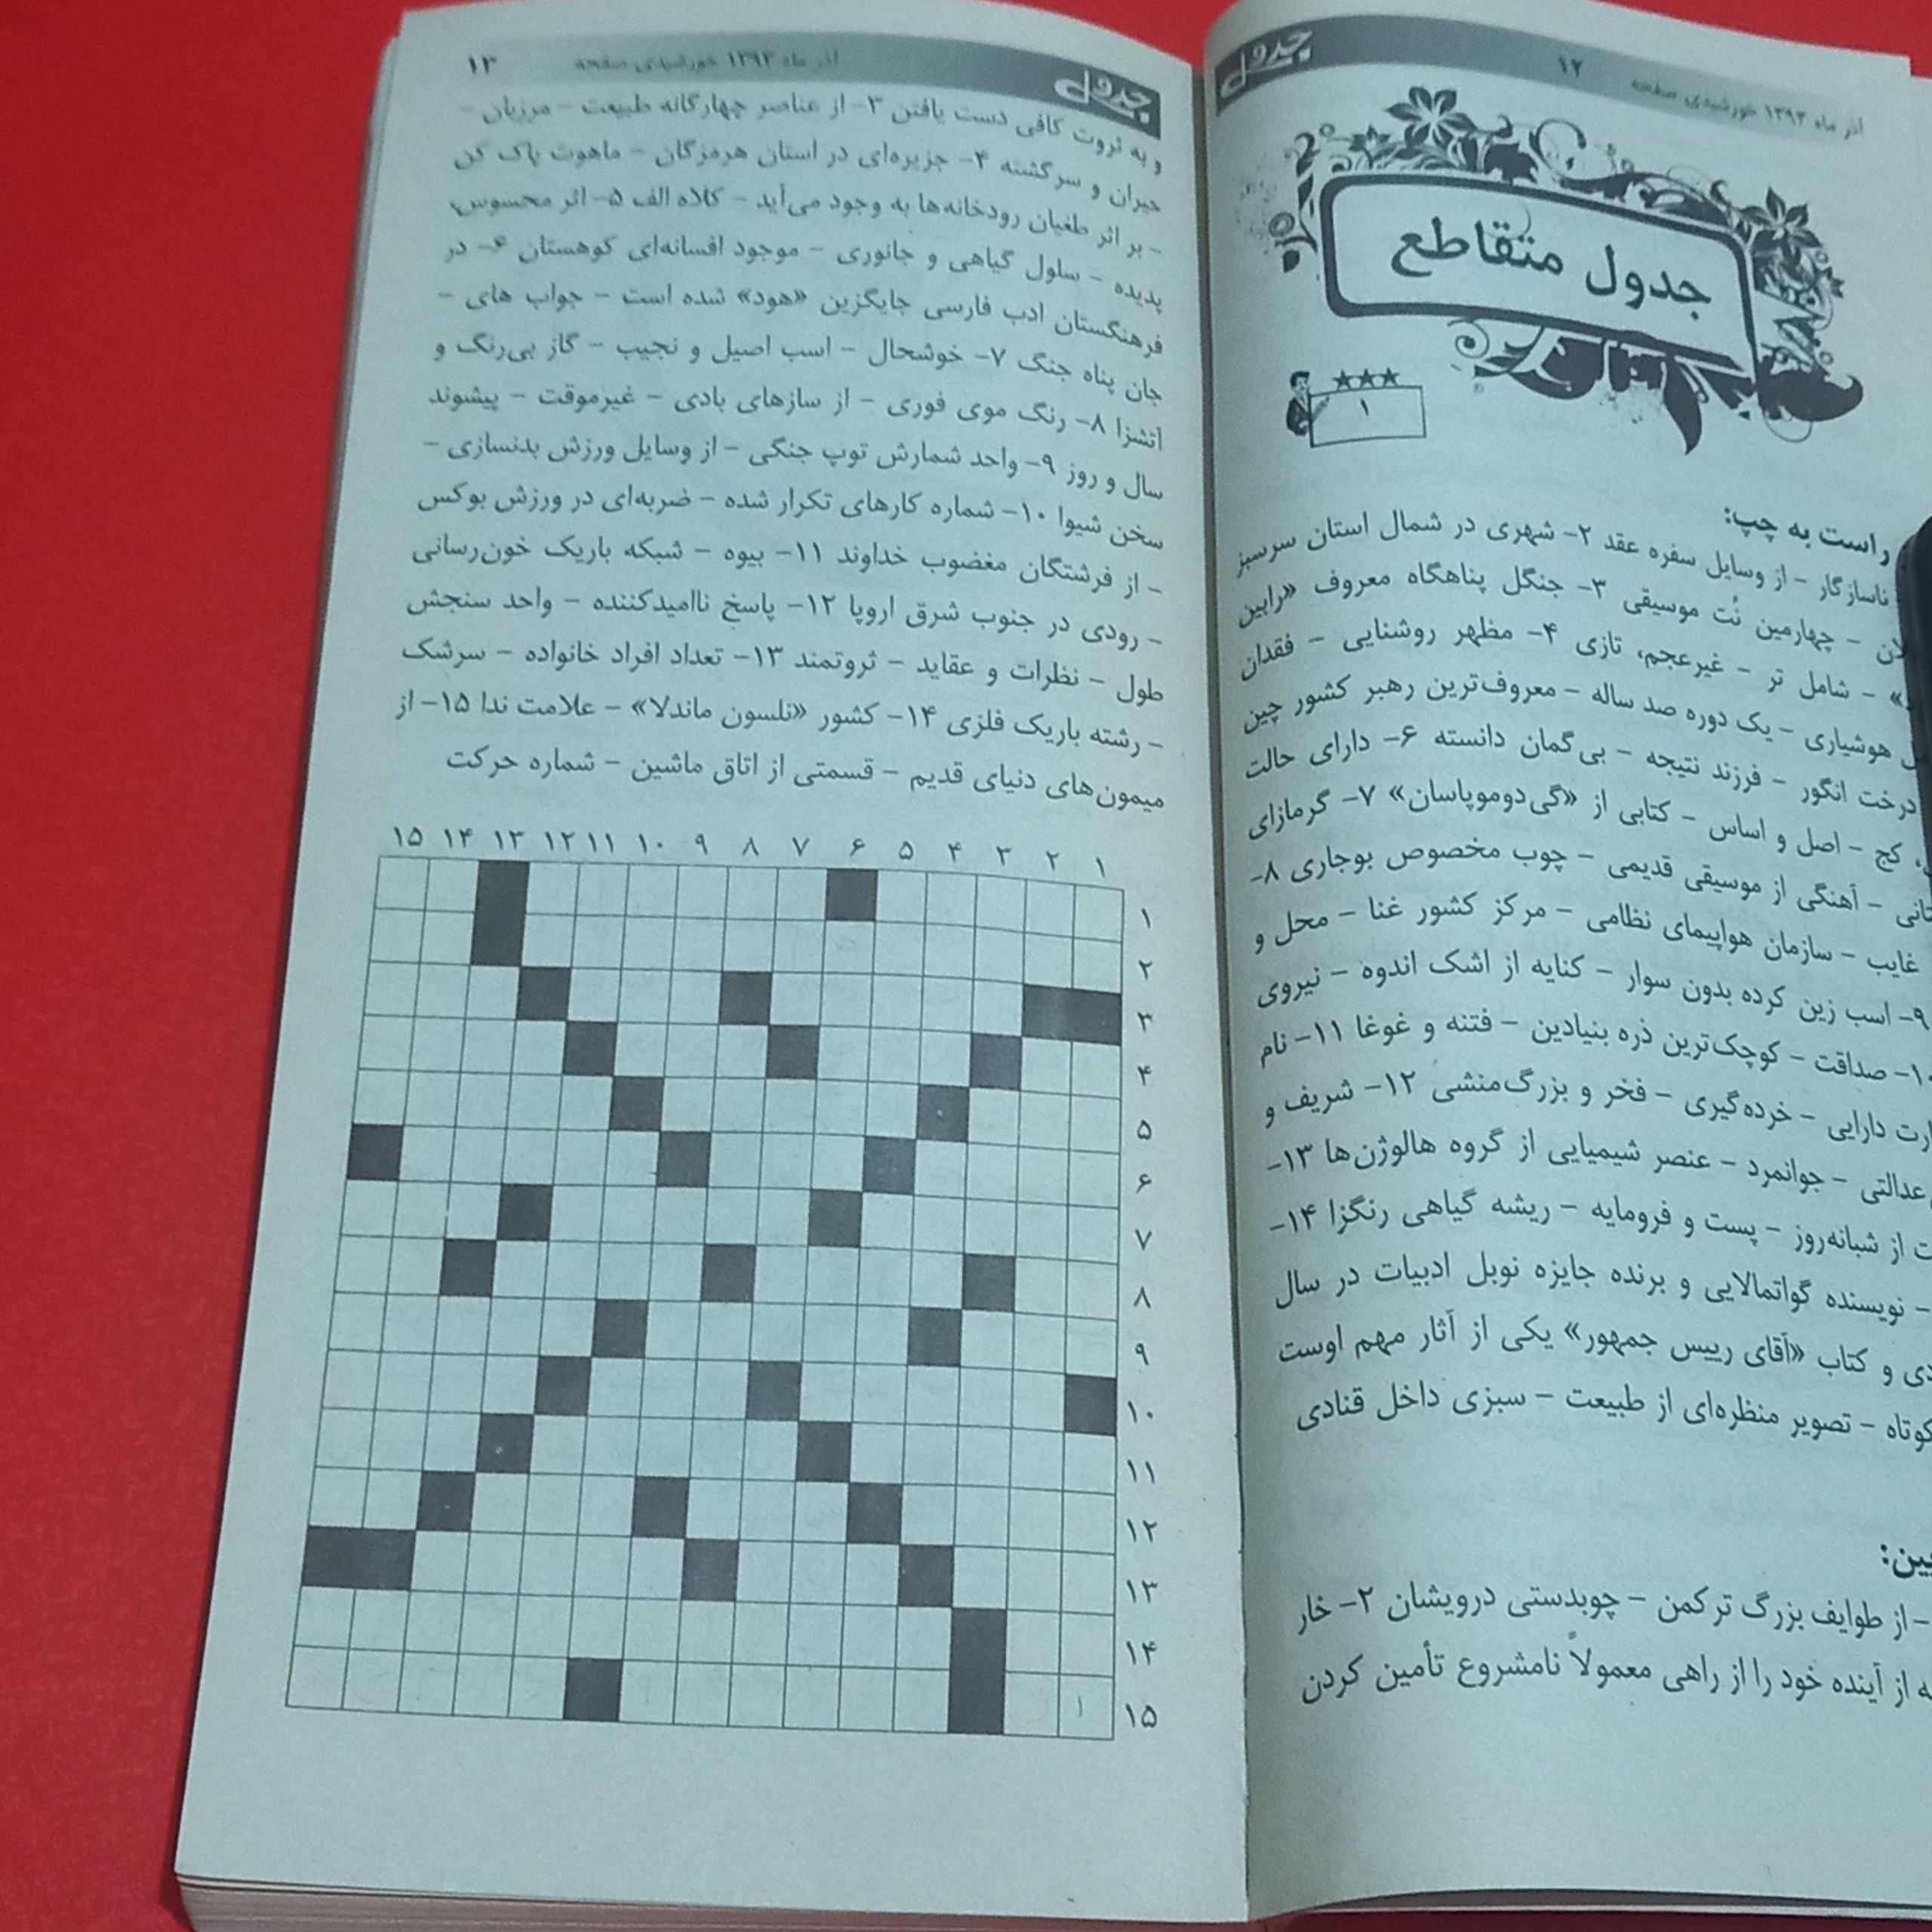 جدول
۱۲
آذر ماه ۱۳۹۳ خورشیدی صفحه
جدول متقاطع
۱
راست به چپ:
ناسازگار - از وسایل سفره عقد ۲- شهری در شمال استان سرسبز
- چهارمین نُت موسیقی ۳- جنگل پناهگاه معروف «رابین
» - شامل تر - غیرعجم، تازی ۴- مظهر روشنایی - فقدان
هوشیاری - یک دوره صد ساله - معروف‌ترین رهبر کشور چین
درخت انگور - فرزند نتیجه - بی‌گمان دانسته ۶- دارای حالت
کج - اصل و اساس - کتابی از «گی‌دوموپاسان» ۷- گرمازای
- آهنگی از موسیقی قدیمی - چوب مخصوص بوجاری ۸-
غایب - سازمان هواپیمای نظامی - مرکز کشور غنا - محل و
۹- اسب زین کرده بدون سوار - کنایه از اشک اندوه - نیروی
۱۰- صداقت - کوچک‌ترین ذره بنیادین - فتنه و غوغا ۱۱- نام
دارایی - خرده‌گیری - فخر و بزرگ‌منشی ۱۲- شریف و
عدالتی - جوانمرد - عنصر شیمیایی از گروه هالوژن‌ها ۱۳-
از شبانه‌روز - پست و فرومایه - ریشه گیاهی رنگزا ۱۴-
- نویسنده گواتمالایی و برنده جایزه نوبل ادبیات در سال
و کتاب «آقای رییس جمهور» یکی از آثار مهم اوست
کوتاه - تصویر منظره‌ای از طبیعت - سبزی داخل قنادی
- از طوایف بزرگ ترکمن - چوبدستی درویشان ۲- خار
از آینده خود را از راهی معمولاً نامشروع تأمین کردن
جدول
آذر ماه ۱۳۹۳ خورشیدی صفحه
۱۳
و به ثروت کافی دست یافتن ۳- از عناصر چهارگانه طبیعت - مرزبان -
حیران و سرگشته ۴- جزیره‌ای در استان هرمزگان - ماهوت پاک کن
- بر اثر طغیان رودخانه‌ها به وجود می‌آید - کلاه الف ۵- اثر محسوس،
پدیده - سلول گیاهی و جانوری - موجود افسانه‌ای کوهستان ۶- در
فرهنگستان ادب فارسی جایگزین «هود» شده است - جواب های -
جان پناه جنگ ۷- خوشحال - اسب اصیل و نجیب - گاز بی‌رنگ و
آتشزا ۸- رنگ موی فوری - از سازهای بادی - غیرموقت - پیشوند
سال و روز ۹- واحد شمارش توپ جنگی - از وسایل ورزش بدنسازی -
سخن شیوا ۱۰- شماره کارهای تکرار شده - ضربه‌ای در ورزش بوکس
- از فرشتگان مغضوب خداوند ۱۱- بیوه - شبکه باریک خون‌رسانی
- رودی در جنوب شرق اروپا ۱۲- پاسخ ناامیدکننده - واحد سنجش
طول - نظرات و عقاید - ثروتمند ۱۳- تعداد افراد خانواده - سرشک
- رشته باریک فلزی ۱۴- کشور «نلسون ماندلا» - علامت ندا ۱۵- از
میمون‌های دنیای قدیم - قسمتی از اتاق ماشین - شماره حرکت
۱ ۲ ۳ ۴ ۵ ۶ ۷ ۸ ۹ ۱۰ ۱۱ ۱۲ ۱۳ ۱۴ ۱۵
۱
۲
۳
۴
۵
۶
۷
۸
۹
۱۰
۱۱
۱۲
۱۳
۱۴
۱۵